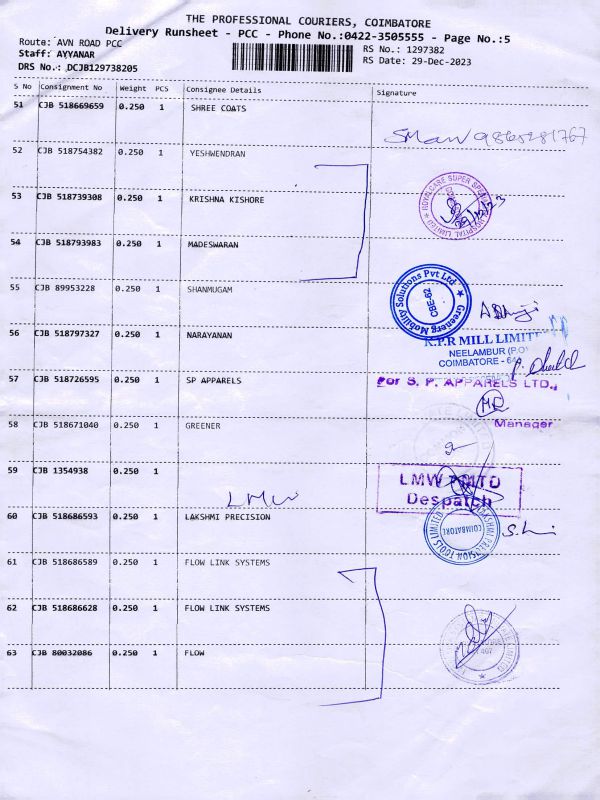 THE PROFESSIONAL COURIERS, COIMBATORE
Delivery Runsheet - PCC - Phone No.:0422-3505555 - Page No.:5
Route: AVN ROAD PCC
RS No.: 1297382
Staff: AYYANAR
RS Date: 29-Dec-2023
DRS No.: DCJB129738205
S No Consignment No Weight PCS Consignee Details Signature
51 CJB 518669659 0.250 1 SHREE COATS
9865281767
52 CJB 518754382 0.250 1 YESHWENDRAN
53 CJB 518739308 0.250 1 KRISHNA KISHORE
ROYALCARE SUPER HOSPITAL LIMITED
54 CJB 518793983 0.250 1 MADESWARAN
55 CJB 89953228 0.250 1 SHANMUGAM
Greenerg Mobility Solutions Pvt Ltd
CBE-62
56 CJB 518797327 0.250 1 NARAYANAN
K.P.R MILL LIMITED
NEELAMBUR (P.O)
COIMBATORE - 64
57 CJB 518726595 0.250 1 SP APPARELS
For S. P. APPARELS LTD.,
Manager
58 CJB 518671040 0.250 1 GREENER
59 CJB 1354938 0.250 1
LMW
LMW LIMITED
Despatch
60 CJB 518686593 0.250 1 LAKSHMI PRECISION
LAKSHMI PRECISION TOOLS LIMITED
COIMBATORE
61 CJB 518686589 0.250 1 FLOW LINK SYSTEMS
62 CJB 518686628 0.250 1 FLOW LINK SYSTEMS
63 CJB 80032086 0.250 1 FLOW